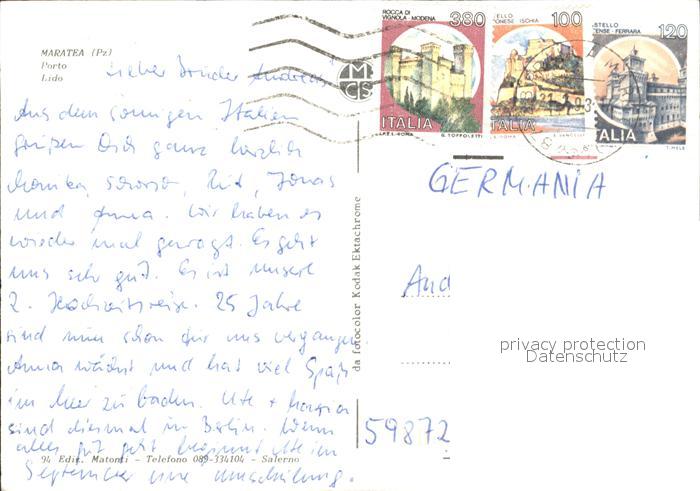 MARATEA (Pz)
Porto
Lido
Lieber Bruder Andreas!
Aus dem sonnigen Italien
grüßen Dich ganz herzlich
Monika, Jonas
und Anna. Wir haben es
wieder mal gewagt. Es geht
uns sehr gut. Es ist unsere
2. Hochzeitsreise. 25 Jahre
sind nun schon für uns vergangen.
Anna wächst und hat viel Spaß
im Meer zu baden. Ute +
sind diesmal in Berlin. Wenn
alles gut geht beginnt Ute im
September eine Umschulung.
94 Edit. Matonti - Telefono 089-334104 - Salerno
da fotocolor Kodak Ektachrome
MCS
ROCCA DI
VIGNOLA - MODENA
380
ITALIA
I.P.Z.S. ROMA
E. TOFFOLETTI
CASTELLO
ARAGONESE ISCHIA
100
ITALIA
CASTELLO
ESTENSE - FERRARA
120
ITALIA
T. MELE
GERMANIA
And
59872
privacy protection
Datenschutz